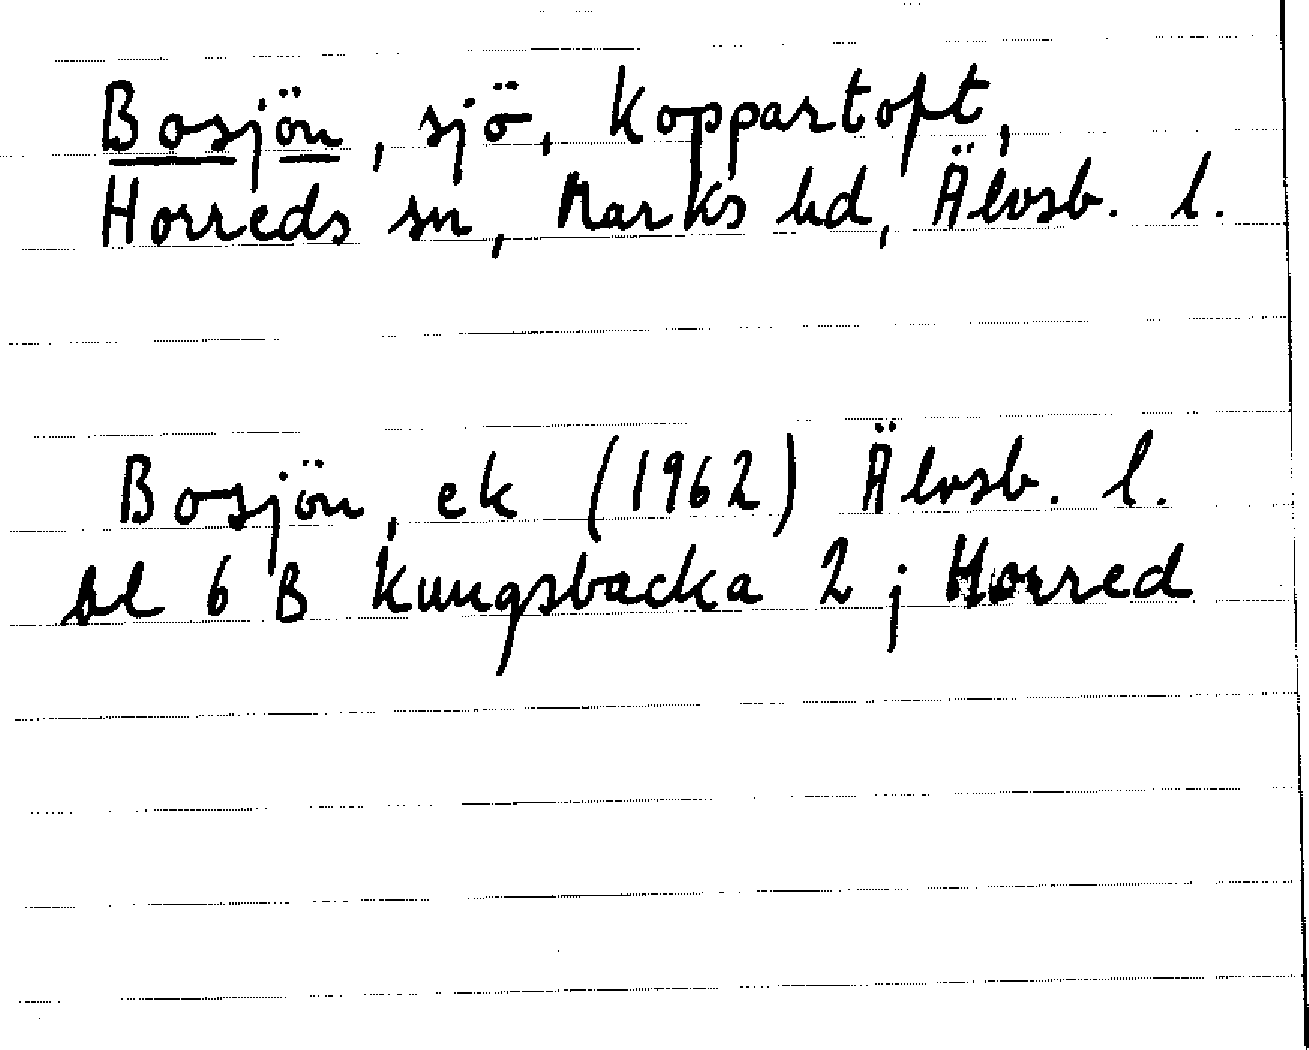 Bosjön, sjö, Koppartoft,
Horreds sn, Marks hd, Älvsb. l.
Bosjön, ek (1962) Älvsb. l.
bl 6 B Kungsbacka 2 j Horred